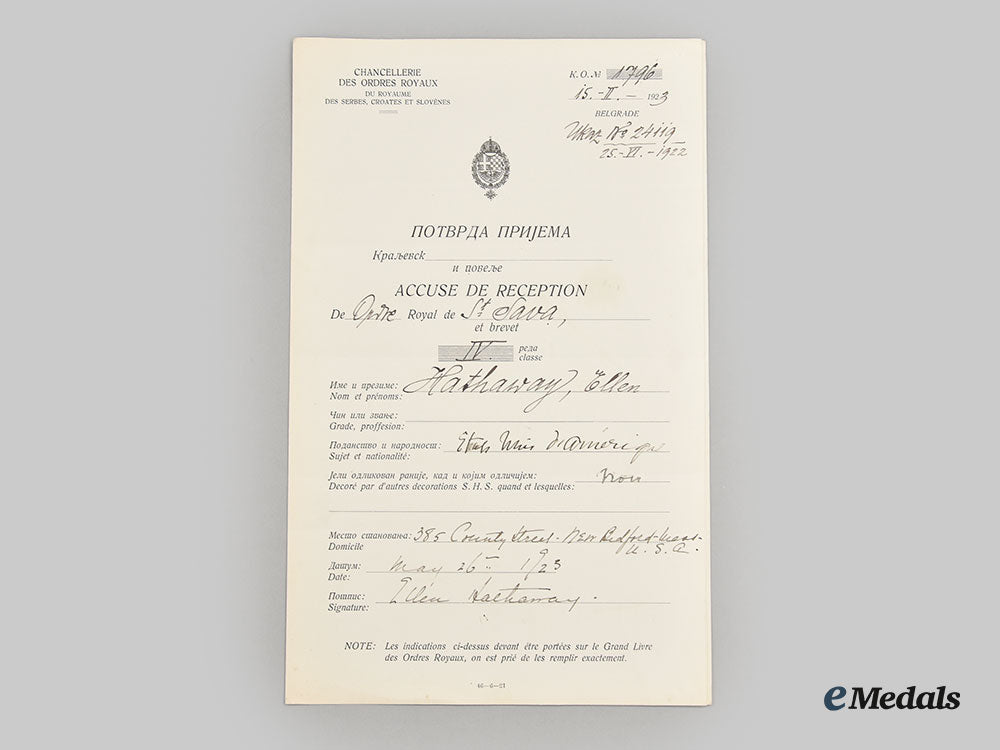 CHANCELLERIE
DES ORDRES ROYAUX
DU ROYAUME
DES SERBES, CROATES ET SLOVÈNES
K. O. № 1796
15.-II.- 1923
BELGRADE
Ukaz № 24119
25.-VI.-1922
ПОТВРДА ПРИЈЕМА
Краљевск
и повеље
ACCUSE DE RECEPTION
De Ordre Royal de St Sava,
et brevet
IV. реда
classe
Име и презиме: Hathaway, Ellen
Nom et prénoms:
Чин или звање:
Grade, proffesion:
Поданство и народност: États Unis d'Amérique
Sujet et nationalité:
Јели одликован раније, кад и којим одличијем: Non
Decoré par d'autres decorations S. H. S. quand et lesquelles:
Место становања: 385 County Street - New Bedford - Mass -
Domicile U. S. A.
Датум: May 26th 1923
Date:
Потпис: Ellen Hathaway.
Signature:
NOTE: Les indications ci-dessus devant être portées sur le Grand Livre
des Ordres Royaux, on est prié de les remplir exactement.
46—6—21
eMedals